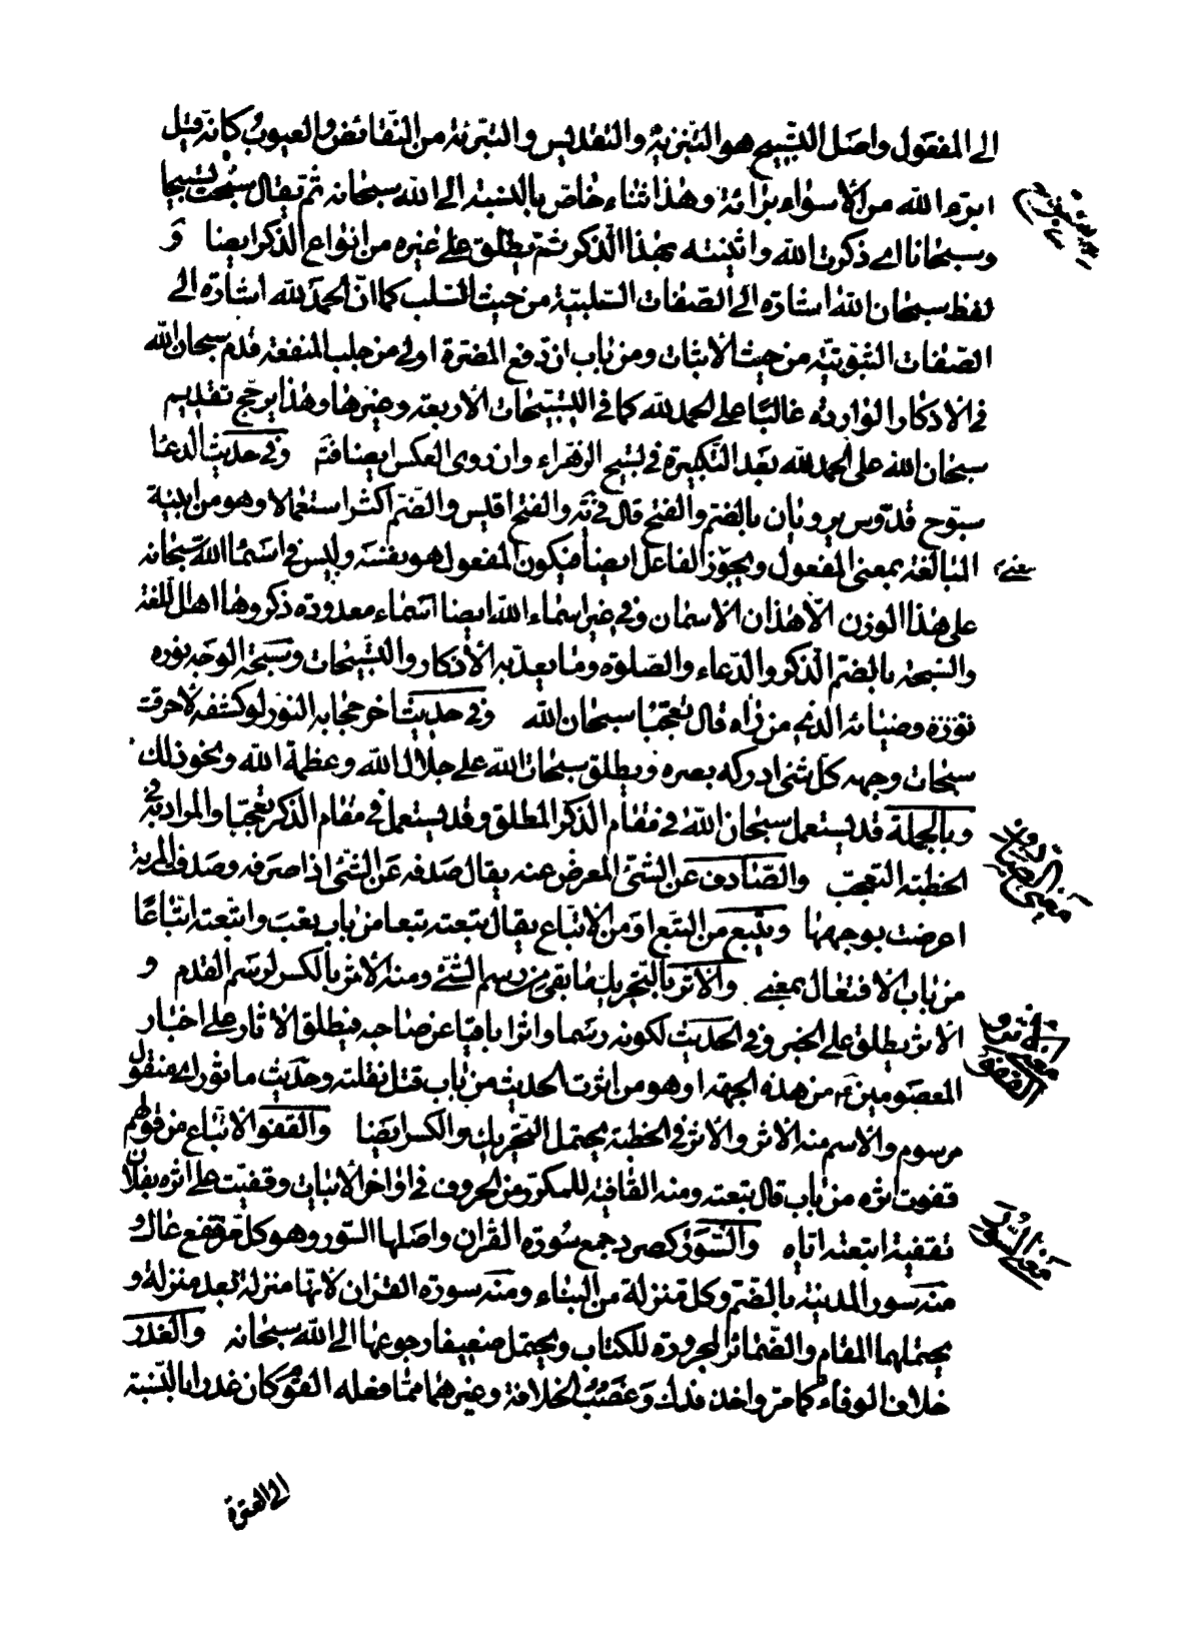 الى المفعول واصل التسبيح هو التنزيه والتقديس والتبرئة من النقائص والعيوب كانه قيل
ابرء الله من الاسواء برائة وهذا ثناء خاص بالنسبة الى الله سبحانه ثم يقال سبحت تسبيحا
وسبحانا اى ذكرت الله واثنيته بهذا الذكر ثم يطلق على غيره من انواع الذكر ايضا و
لفظ سبحان الله اشارة الى الصفات السلبية من حيث السلب كما ان الحمد لله اشارة الى
الصفات الثبوتية من حيث الاثبات ومن باب ان دفع المضرة اولى من جلب المنفعة قدم سبحان الله
فى الاذكار الواردة غالبا على الحمد لله كما فى التسبيحات الاربعة وغيرها وهذا يرجح تقديم
سبحان الله على الحمد لله بعد التكبيرة فى تسبيح الزهراء وان روى العكس ايضا فتم وفى حديث الدعا
سبوح قدوس يرويان بالضم والفتح قال فى ية والفتح اقيس والضم اكثر استعمالا وهو من ابنية
المبالغة بمعنى المفعول ويجوز الفاعل ايضا فيكون المفعول هو نفسه وليس فى اسماء الله سبحانه
على هذا الوزن الا هذان الاسمان وفى غير اسماء الله ايضا اسماء معدودة ذكروها اهل اللغة
والسبحة بالضم الذكر والدعاء والصلوة وما يعد به الاذكار والتسبيحات وسبحة الوجه نوره
نوره وضيائه الذى من راه قال تعجبا سبحان الله وفى حديث اخر حجابه النور لو كشفه لاحرقت
سبحات وجهه كل شئ ادركه بصره ويطلق سبحات الله على جلال الله وعظمة الله ونحو ذلك
وبالجملة قد يستعمل سبحان الله فى مقام الذكر المطلق وقد يستعمل فى مقام الذكر تعجبا والمراد به فى
الخطبة التعجب والصادف عن الشئ المعرض عنه يقال صدفه عن الشئ اذا صرفه وصدف المرية
اعرضت بوجهها ويتبع من التبع او من الاتباع يقال تبعته تبعا من باب يغب واتبعته اتباعا
من باب الافتعال بمعنى والاثر بالتحريك ما بقى من رسم الشئ ومنه الاثر بالكسر لرسم القدم و
الاثر يطلق على الخبر وفى الحديث لكونه رسما واثرا باقيا عن صاحبه فيطلق الاثار على اخبار
المعصومين ع من هذه الجهة او هو من اثرت الحديث من باب قتل نقلته وحديث ماثور اى منقول
مرسوم والاسم منه الاثر والاثر فى الخطبة يحتمل التحريك والكسر ايضا والقفو الاتباع من قولهم
قفوت اثره من باب قال تبعته ومنه القافية للمكرر من الحروف فى اواخر الابيات وقفيت على اثره بفلان
تقفية اتبعته اياه والسور كصرد جمع سورة القران واصلها السور وهو كل مرتفع عال و
منه سور المدينة بالضم وكل منزلة من البناء ومنه سورة القران لانها منزلة بعد منزلة و
يحتملهما المقام والضمائر المجرورة للكتاب ويحتمل ضعيفا رجوعها الى الله سبحانه والغدر
خلاف الوفاء كما مر واخذ فدك وغصب الخلافة وغيرهما مما فعله القوم كان غدرا بالنسبة
الى العترة
بمعنى
معنى الصادف
معنى الاثر و
معنى القفو
معنى السور